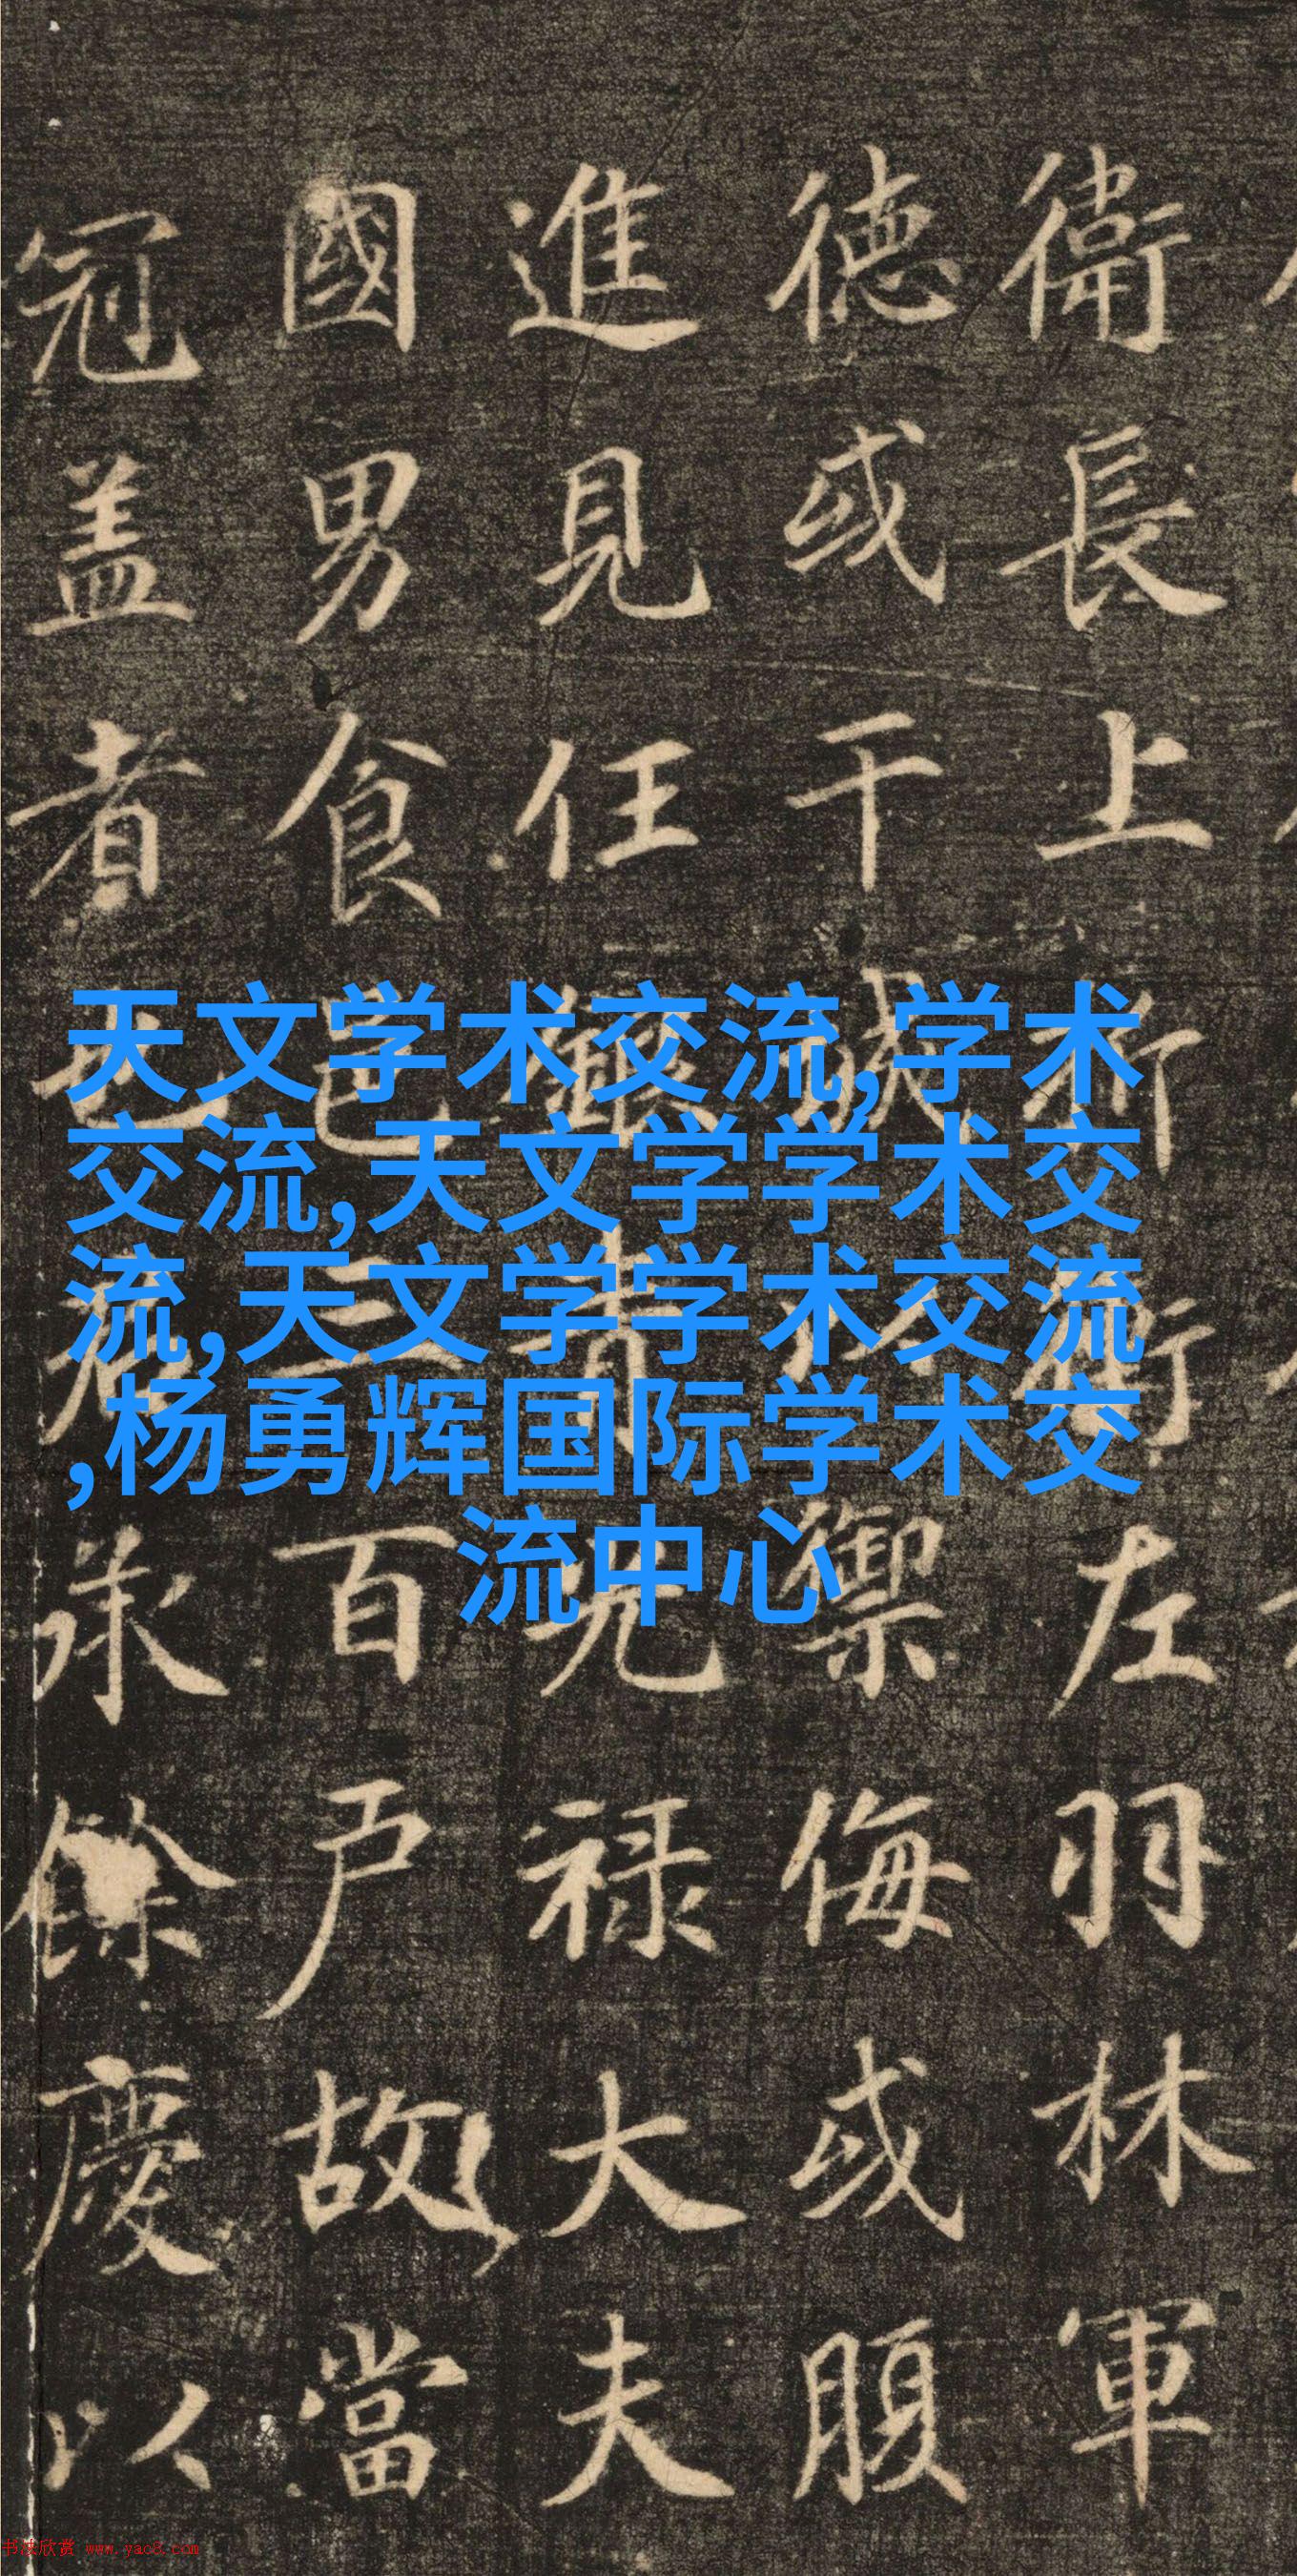 天文学术交流,学术
交流,天文学学术交
流,天文学学术交流
,杨勇辉国际学术交
流中心
衛長上折衝左羽林軍
德或干城禦侮或腹
進見任銀青光禄大夫
國男食邑三百户故當
冠盖者也君承餘慶以
书法欣赏 www.yac8.com